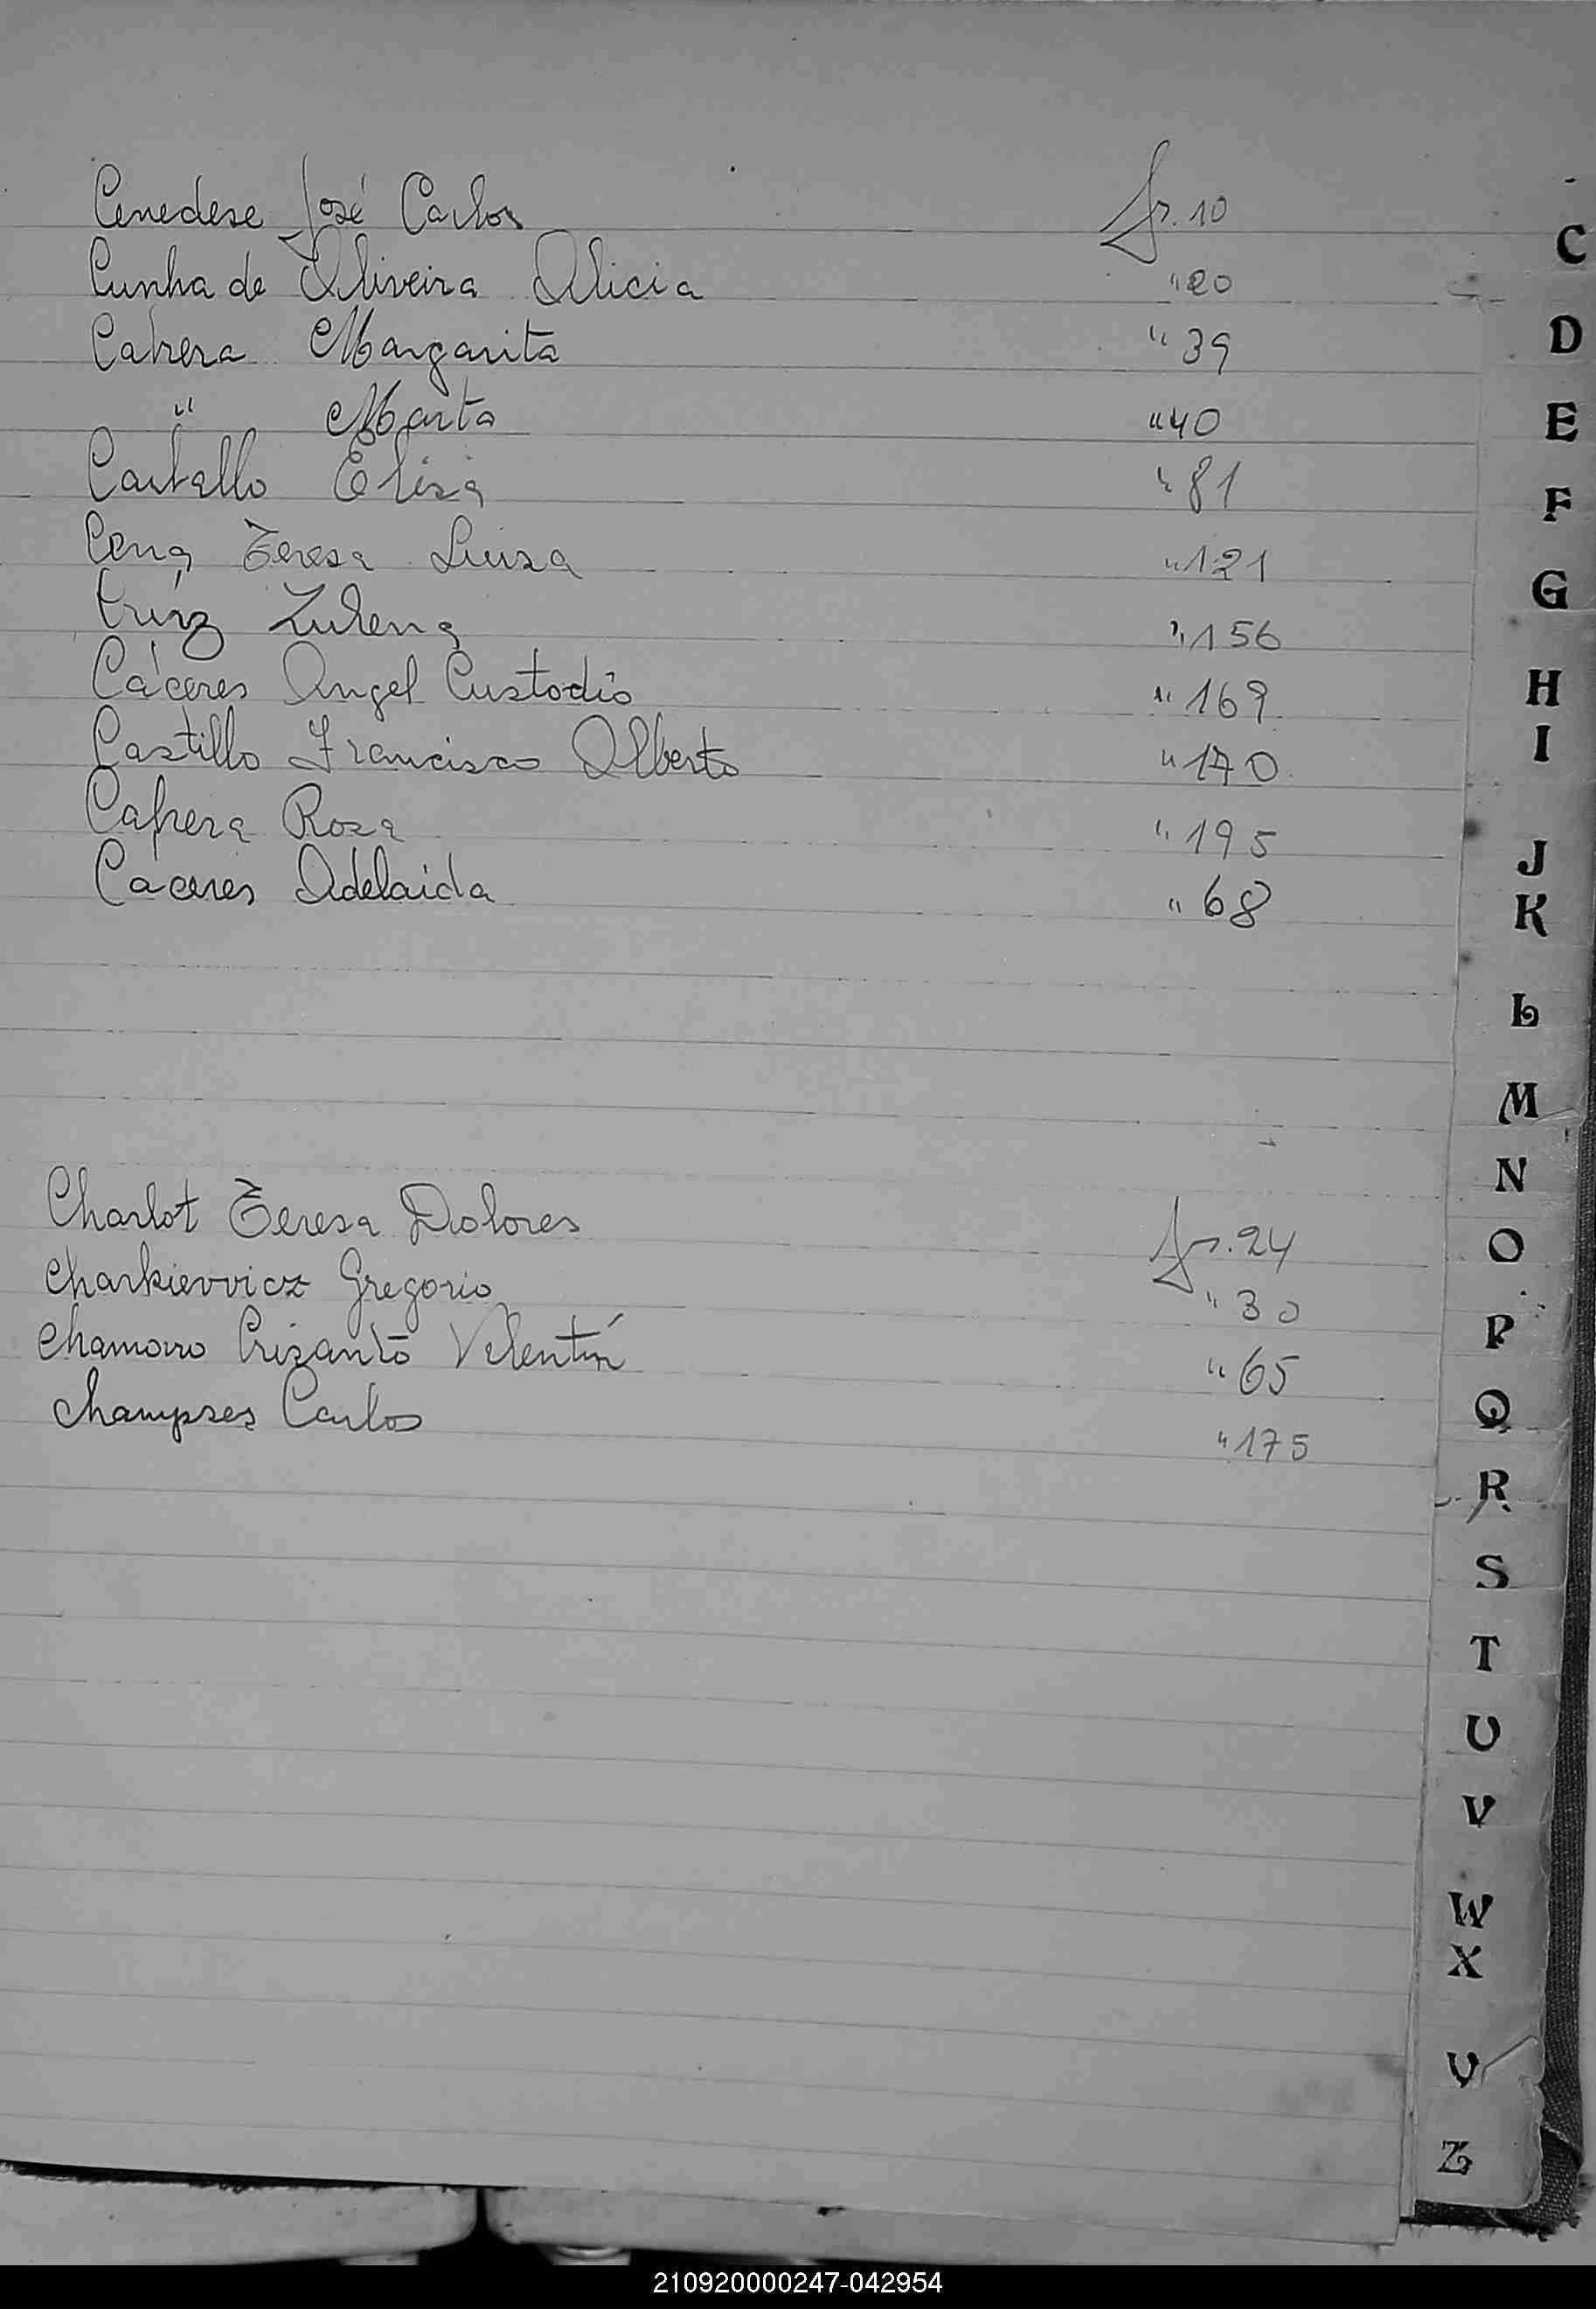 Cenedese José Carlos fs. 10
Cunha de Oliveira Alicia " 20
Cabrera Margarita " 39
" Marta " 40
Castello Elisa " 81
Cena Teresa Luisa " 121
Cruz Zulena " 156
Cáceres Angel Custodio " 169
Castillo Francisco Alberto " 170
Cabrera Rosa " 195
Caceres Adelaida " 68
Charlot Teresa Dolores fs. 24
Charkievvicz Gregorio " 30
Chamorro Crizanto Valentín " 65
Carlos " 175
C
D
E
F
G
H
I
J
K
L
M
N
O
P
Q
R
S
T
U
V
W
X
Z
210920000247-042954